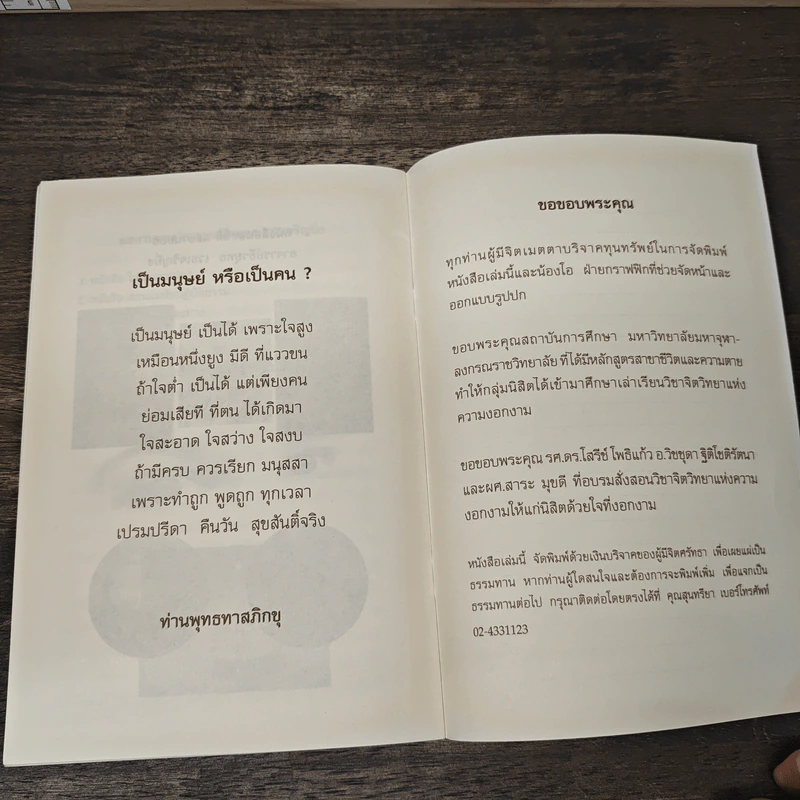 เป็นมนุษย์ หรือเป็นคน ?
เป็นมนุษย์ เป็นได้ เพราะใจสูง
เหมือนหนึ่งยูง มีดี ที่แววขน
ถ้าใจต่ำ เป็นได้ แต่เพียงคน
ย่อมเสียที ที่ตน ได้เกิดมา
ใจสะอาด ใจสว่าง ใจสงบ
ถ้ามีครบ ควรเรียก มนุสสา
เพราะทำถูก พูดถูก ทุกเวลา
เปรมปรีดา คืนวัน สุขสันติ์จริง
ท่านพุทธทาสภิกขุ
ขอขอบพระคุณ
ทุกท่านผู้มีจิตเมตตาบริจาคทุนทรัพย์ในการจัดพิมพ์
หนังสือเล่มนี้และน้องโอ ฝ่ายกราฟฟิกที่ช่วยจัดหน้าและ
ออกแบบรูปปก
ขอบพระคุณสถาบันการศึกษา มหาวิทยาลัยมหาจุฬา-
ลงกรณราชวิทยาลัย ที่ได้มีหลักสูตรสาขาชีวิตและความตาย
ทำให้กลุ่มนิสิตได้เข้ามาศึกษาเล่าเรียนวิชาจิตวิทยาแห่ง
ความงอกงาม
ขอขอบพระคุณ รศ.ดร.โสรีช์ โพธิแก้ว อ.วิชชุดา ฐิติโชติรัตนา
และผศ.สาระ มุขดี ที่อบรมสั่งสอนวิชาจิตวิทยาแห่งความ
งอกงามให้แก่นิสิตด้วยใจที่งอกงาม
หนังสือเล่มนี้ จัดพิมพ์ด้วยเงินบริจาคของผู้มีจิตศรัทธา เพื่อเผยแผ่เป็น
ธรรมทาน หากท่านผู้ใดสนใจและต้องการจะพิมพ์เพิ่ม เพื่อแจกเป็น
ธรรมทานต่อไป กรุณาติดต่อโดยตรงได้ที่ คุณสุนทรียา เบอร์โทรศัพท์
02-4331123